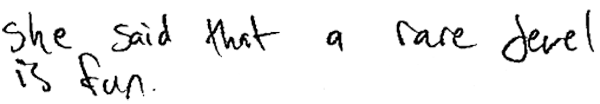 she said that a rare jewel
is fun.